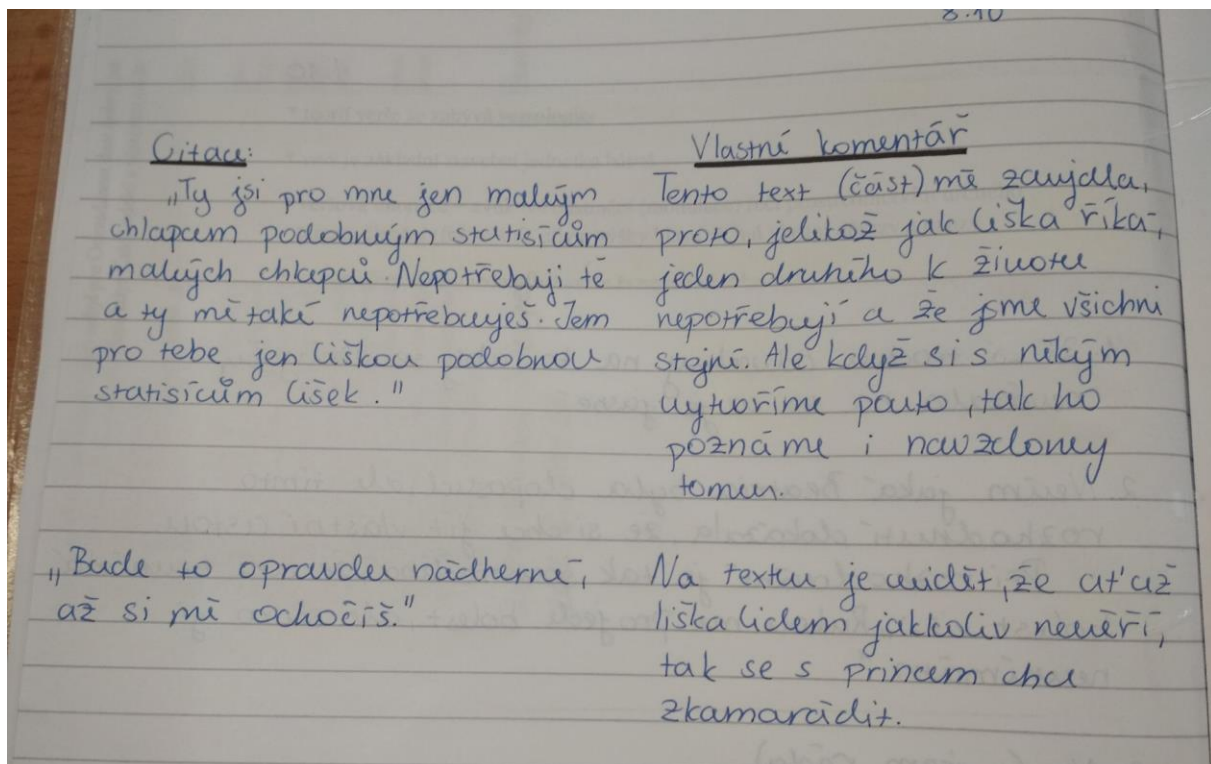 8.10
Citace:
„Ty jsi pro mne jen malým
chlapcem podobným statisícům
malých chlapců. Nepotřebuji tě
a ty mě také nepotřebuješ. Jem
pro tebe jen liškou podobnou
statisícům lišek."
Vlastní komentář
Tento text (část) mě zaujala,
proto, jelikož jak liška říká,
jeden druhého k životu
nepotřebují a že jsme všichni
stejní. Ale když si s někým
vytvoříme pouto, tak ho
poznáme i navzdory
tomu.
„Bude to opravdu nádherné,
až si mě ochočíš."
Na textu je vidět, že ať už
liška lidem jakkoliv nevěří,
tak se s princem chce
zkamarádit.